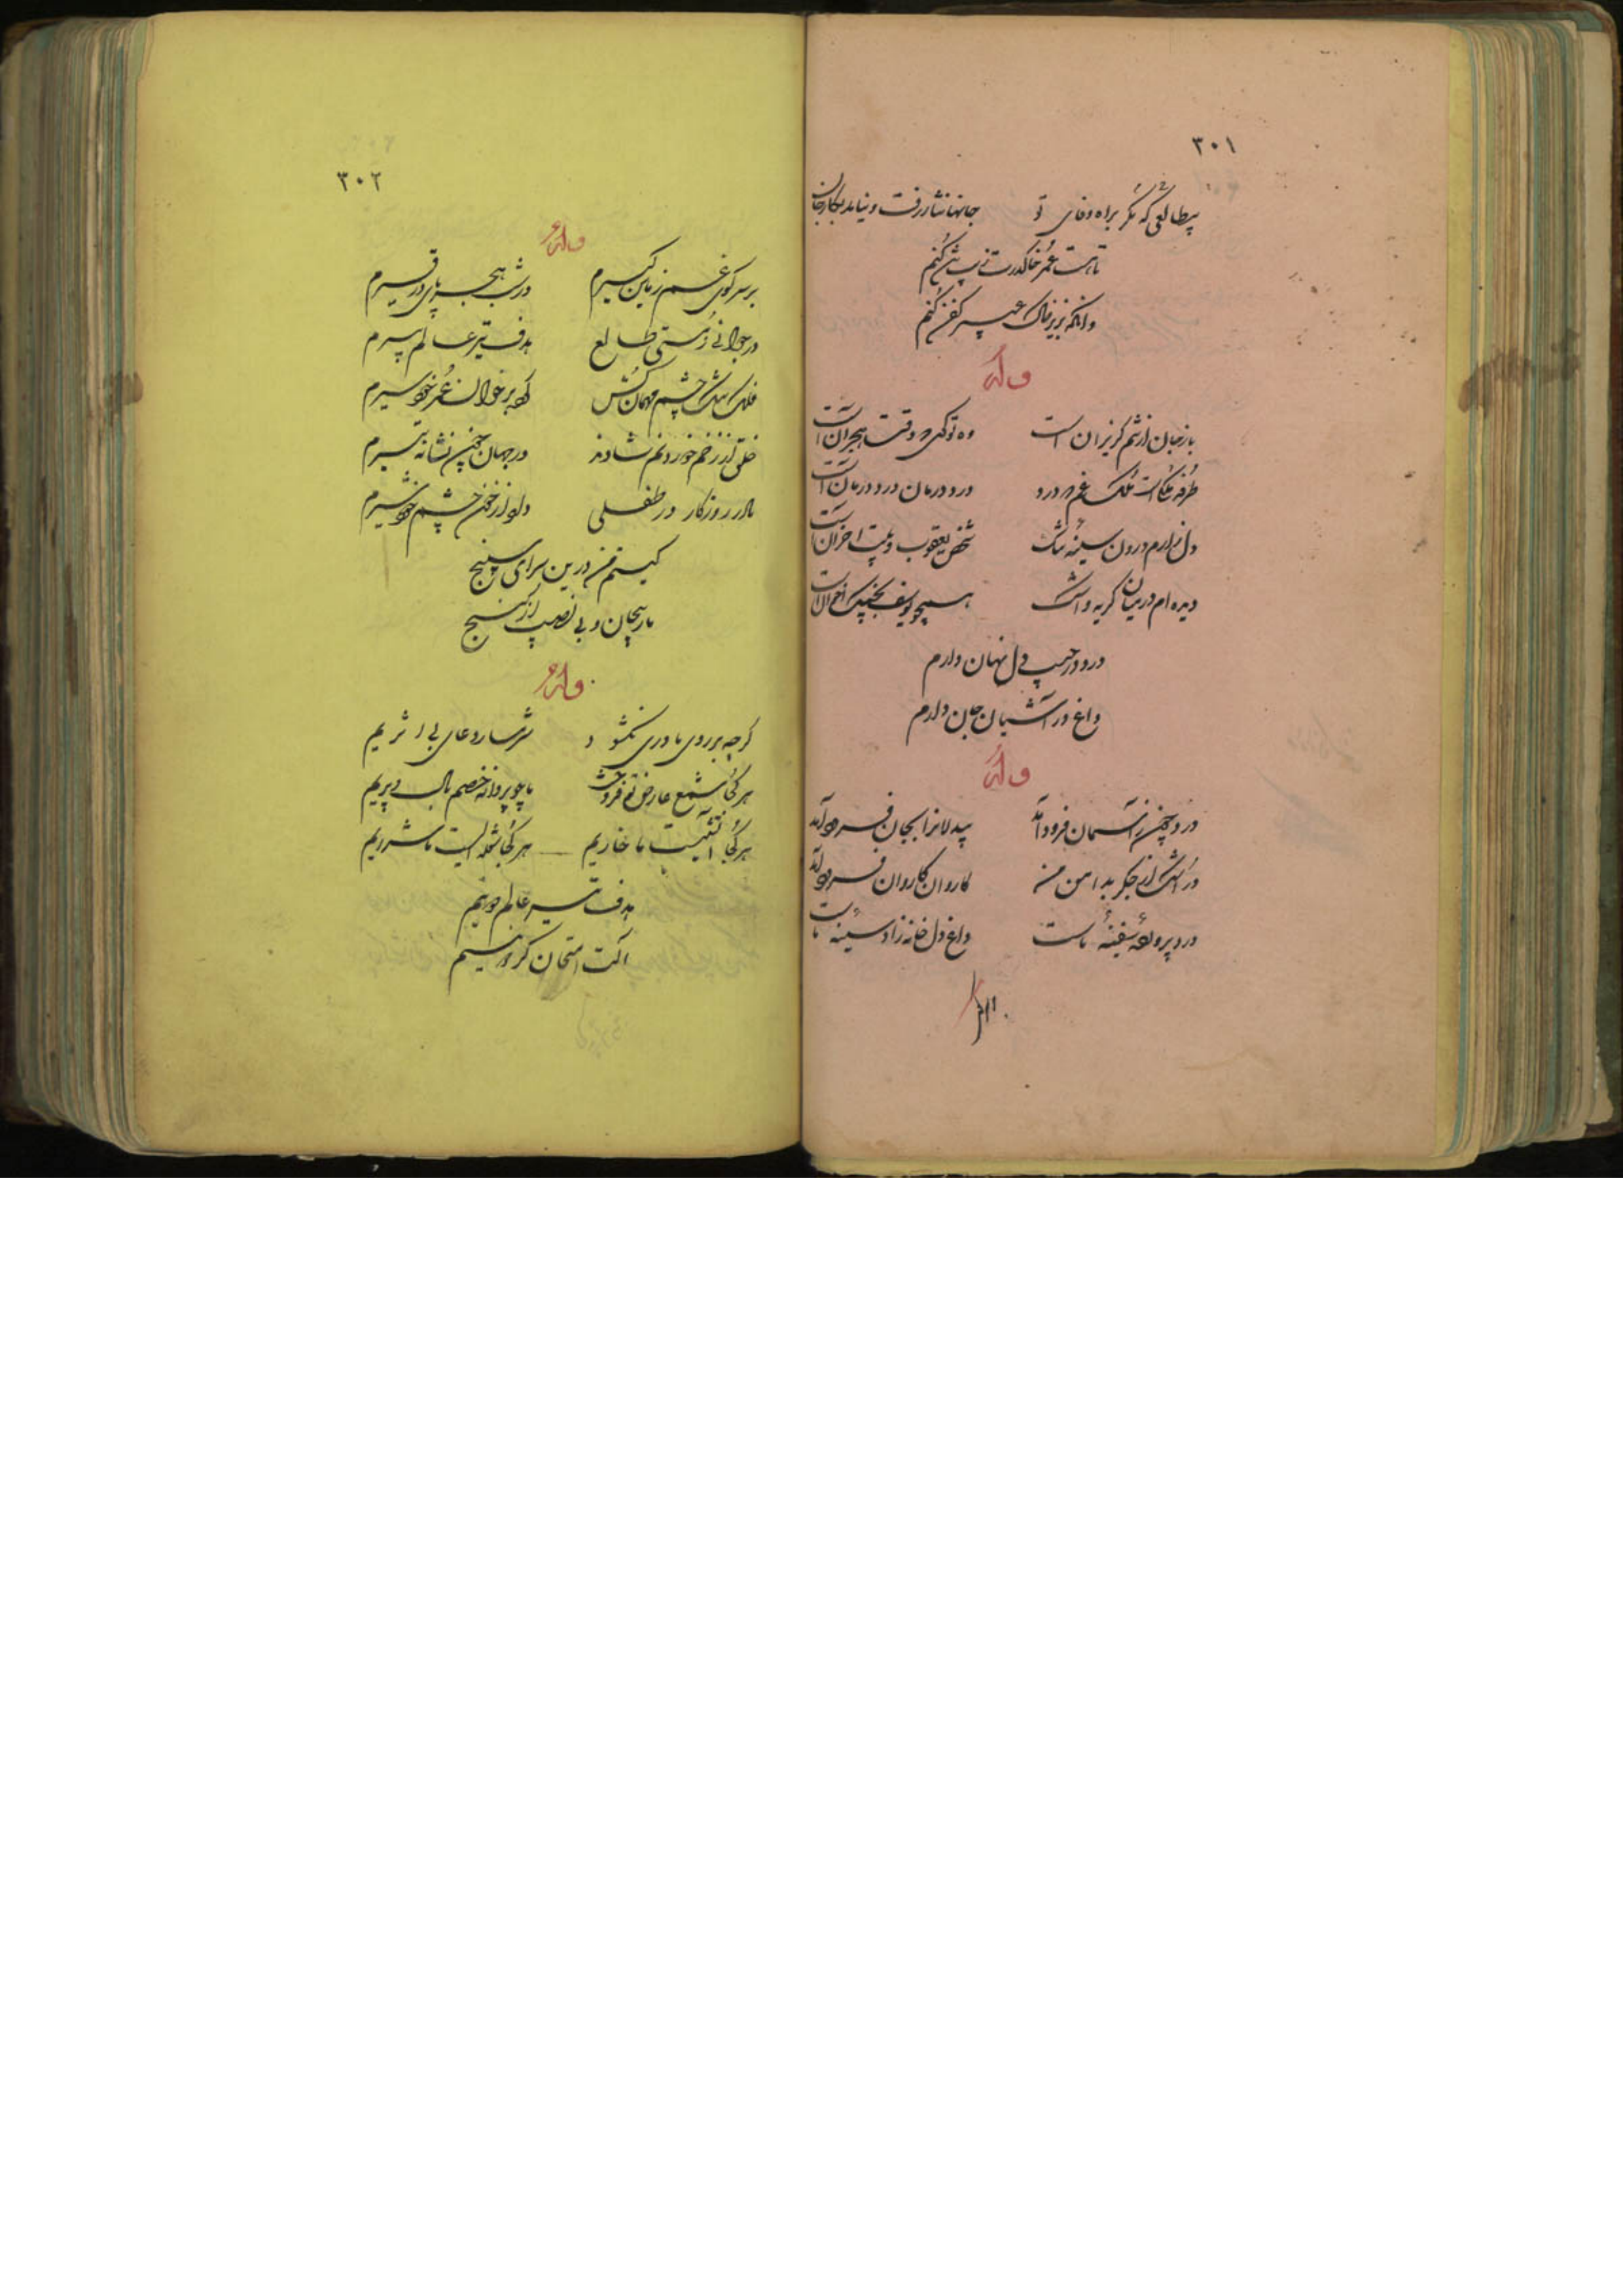 ۳۰۱
بیطالعی که نگر براه وفای تو جانها نثار رفت و نیامد بکار جان
تا هست عمر خاک درت زیب تن کنم
وانگه بزیر خاک عبیر کفن کنم
وله
باز جان از تنم گریزان است وه تو کی وقت هجران است
طرفه ملکیست ملک غم درو درد و درمان درد درمان است
دل زارم درون سینهٔ تنگ شخص یعقوب و بیت احزان است
دیده ام در میان گریه و اشک همچو یوسف بچنگ اخوان است
درد در جیب دل نهان دارم
داغ در آشیان جان دارم
وله
درد چین ز آسمان فرود آمد بیدلانرا بجان فرود آمد
در اشک از جگر بدامن من کاروان کاروان فرود آمد
درد پروردهٔ سفینهٔ ماست داغ دل خانه زاد سینهٔ ماست
۳۰۲
وله
بر سر کوی غم زمین گیرم در شب هجر پای در قیرم
در جوانی ز سستی طالع هدف تیر عالم پیرم
فلک تنگ چشم مهمان کش کرد بر خوان عمر خود سیرم
خلقی از زخم خوردنم شادند در جهان چون نشانهٔ تیرم
مادر روزگار در طفلی داد از خون چشم خود شیرم
کیستم من درین سرای سپنج
مار پیچان و بی نصیب از گنج
وله
گرچه بر روی ما دری نگشود شرمسار دعای بی اثریم
هر کجا شمع عارضی افروخت ما چو پروانه خصم بال و پریم
هر کجا آتشیست ما خاریم هر کجا شعله ایست ما شرریم
هدف تیر عالم دونیم
آلت امتحان گردونیم